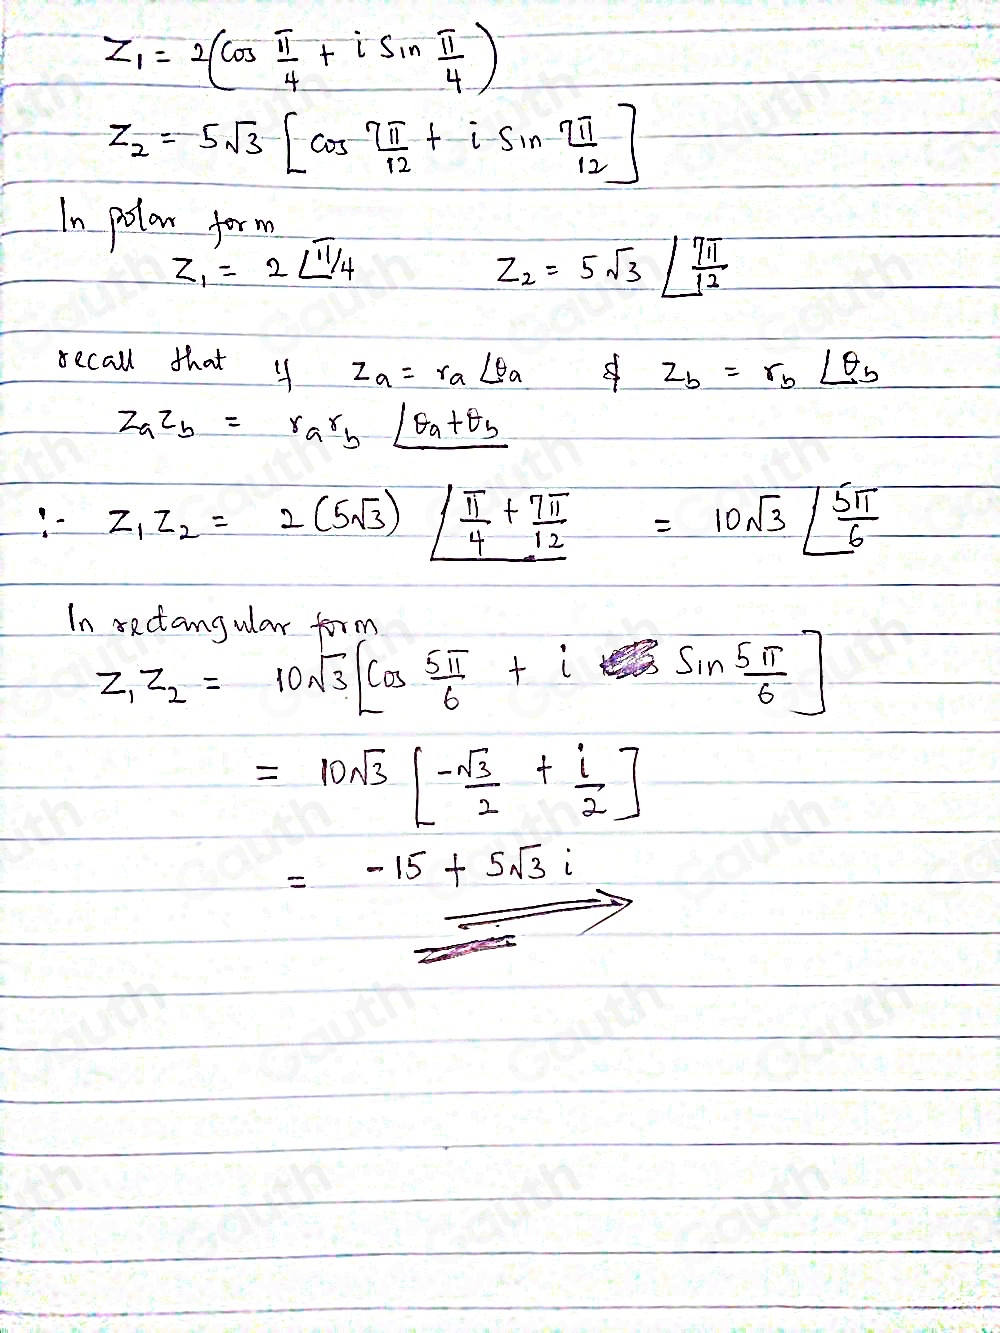 Z₁ = 2(Cos π/4 + i Sin π/4)
Z₂ = 5√3 [cos 7π/12 + i Sin 7π/12]
In polar form
Z₁ = 2 ∠π/4    Z₂ = 5√3 ∠7π/12
recall that if Za = ra ∠θa & Zb = rb ∠θb
ZaZb = ra rb ∠θa+θb
∴ Z₁Z₂ = 2(5√3) ∠π/4 + 7π/12 = 10√3 ∠5π/6
In rectangular form
Z₁Z₂ = 10√3 [Cos 5π/6 + i Sin 5π/6]
= 10√3 [-√3/2 + i/2]
= -15 + 5√3 i